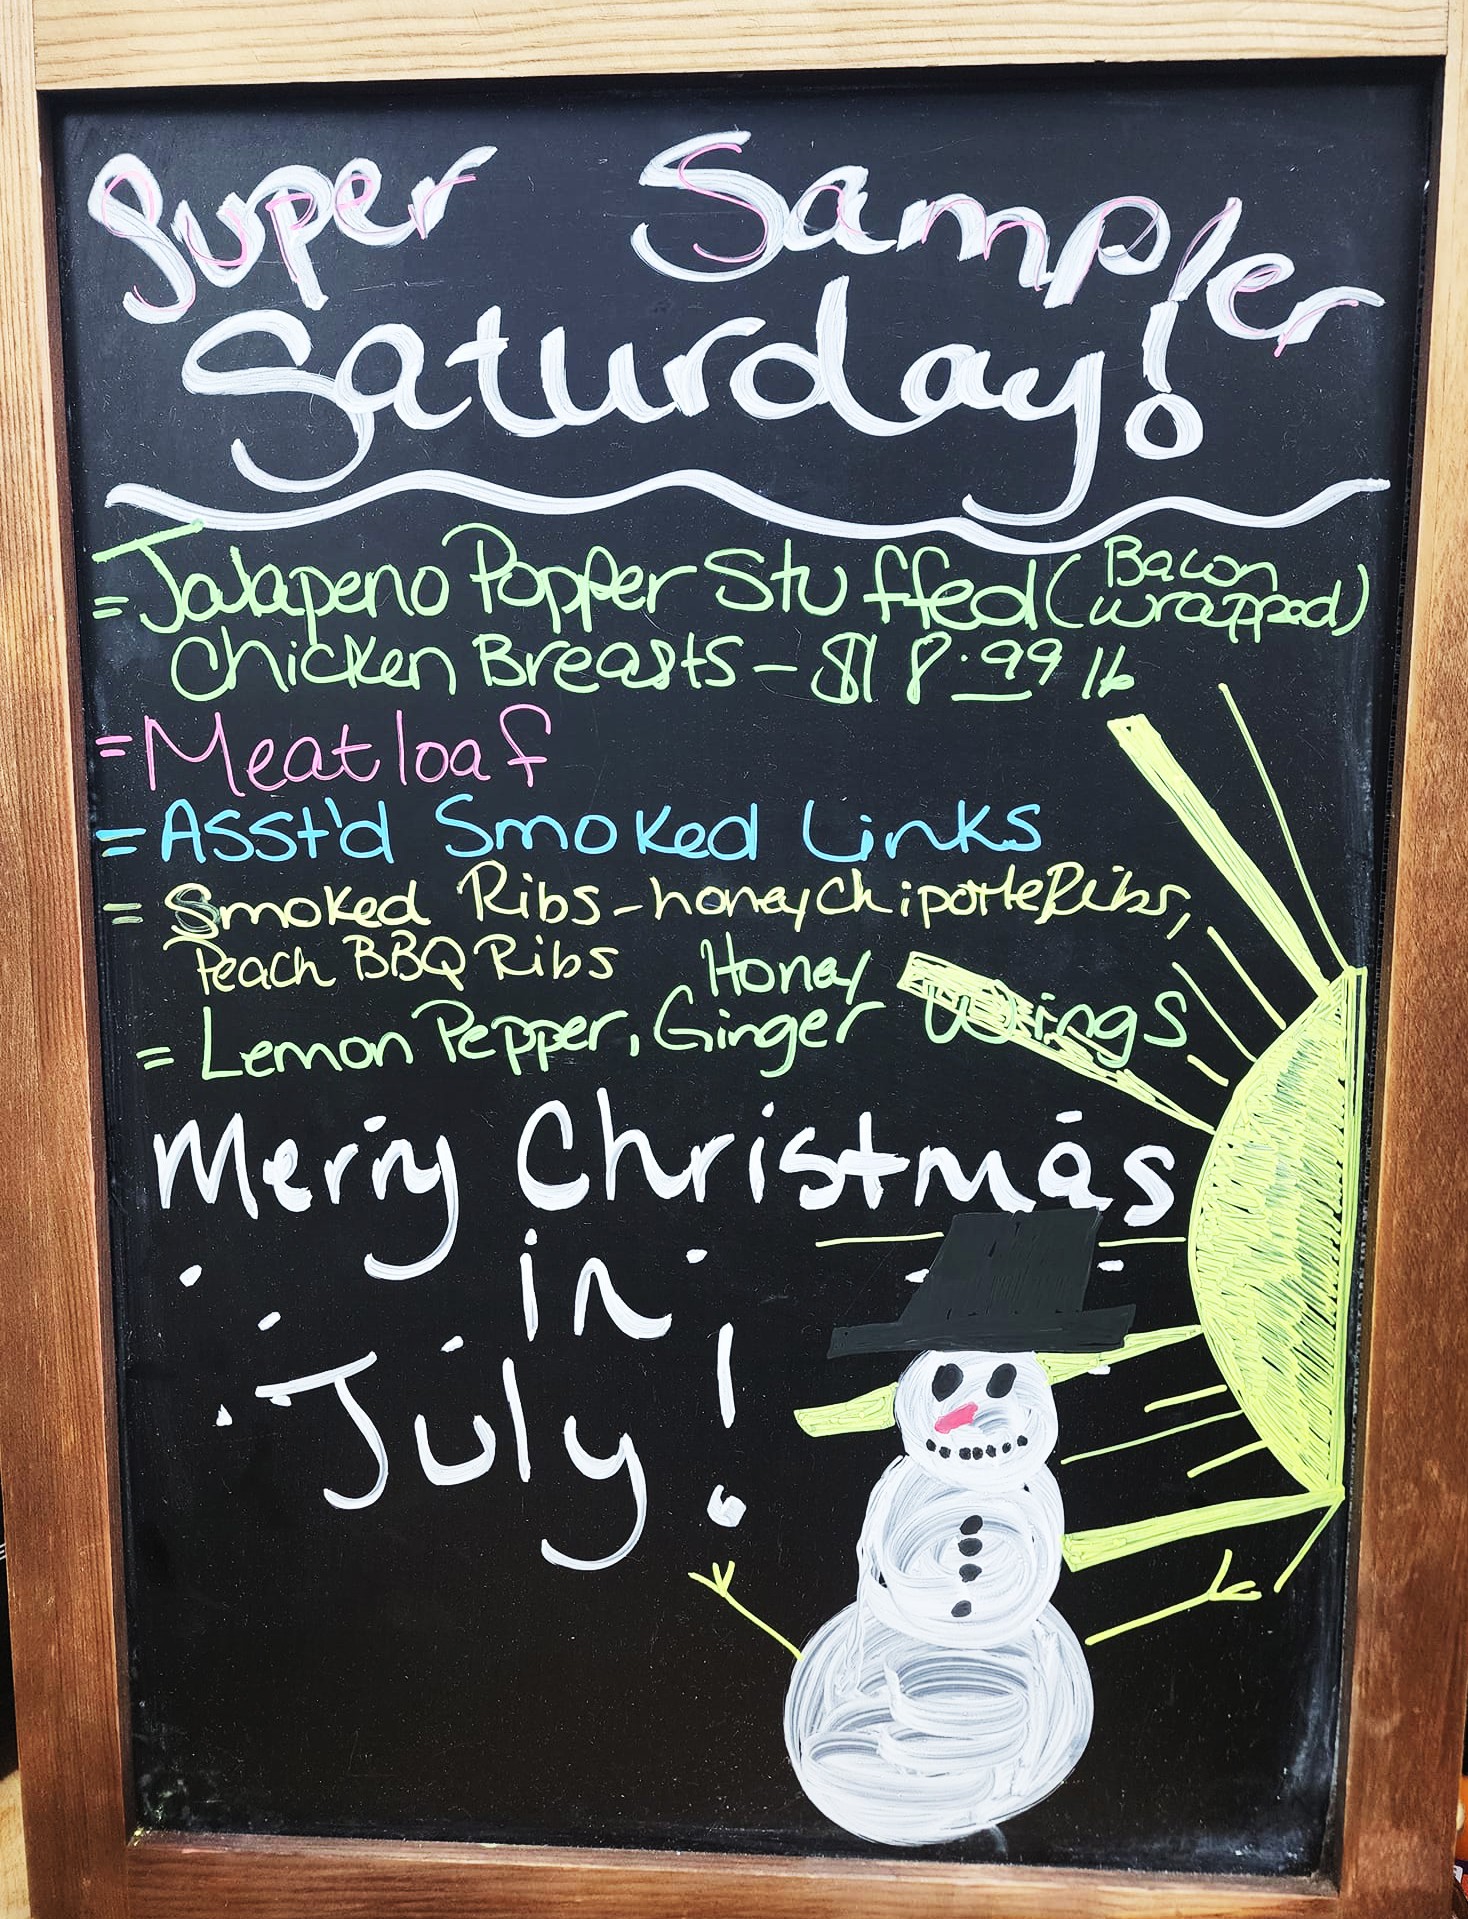 Super Sampler
Saturday!
= Jalapeno Popper Stuffed (Bacon wrapped)
Chicken Breasts - $18.99 lb
= Meatloaf
= Asst'd Smoked Links
= Smoked Ribs - honey Chipotle Ribs,
Peach BBQ Ribs
= Lemon Pepper, Honey Ginger Wings
Merry Christmas
in
July!